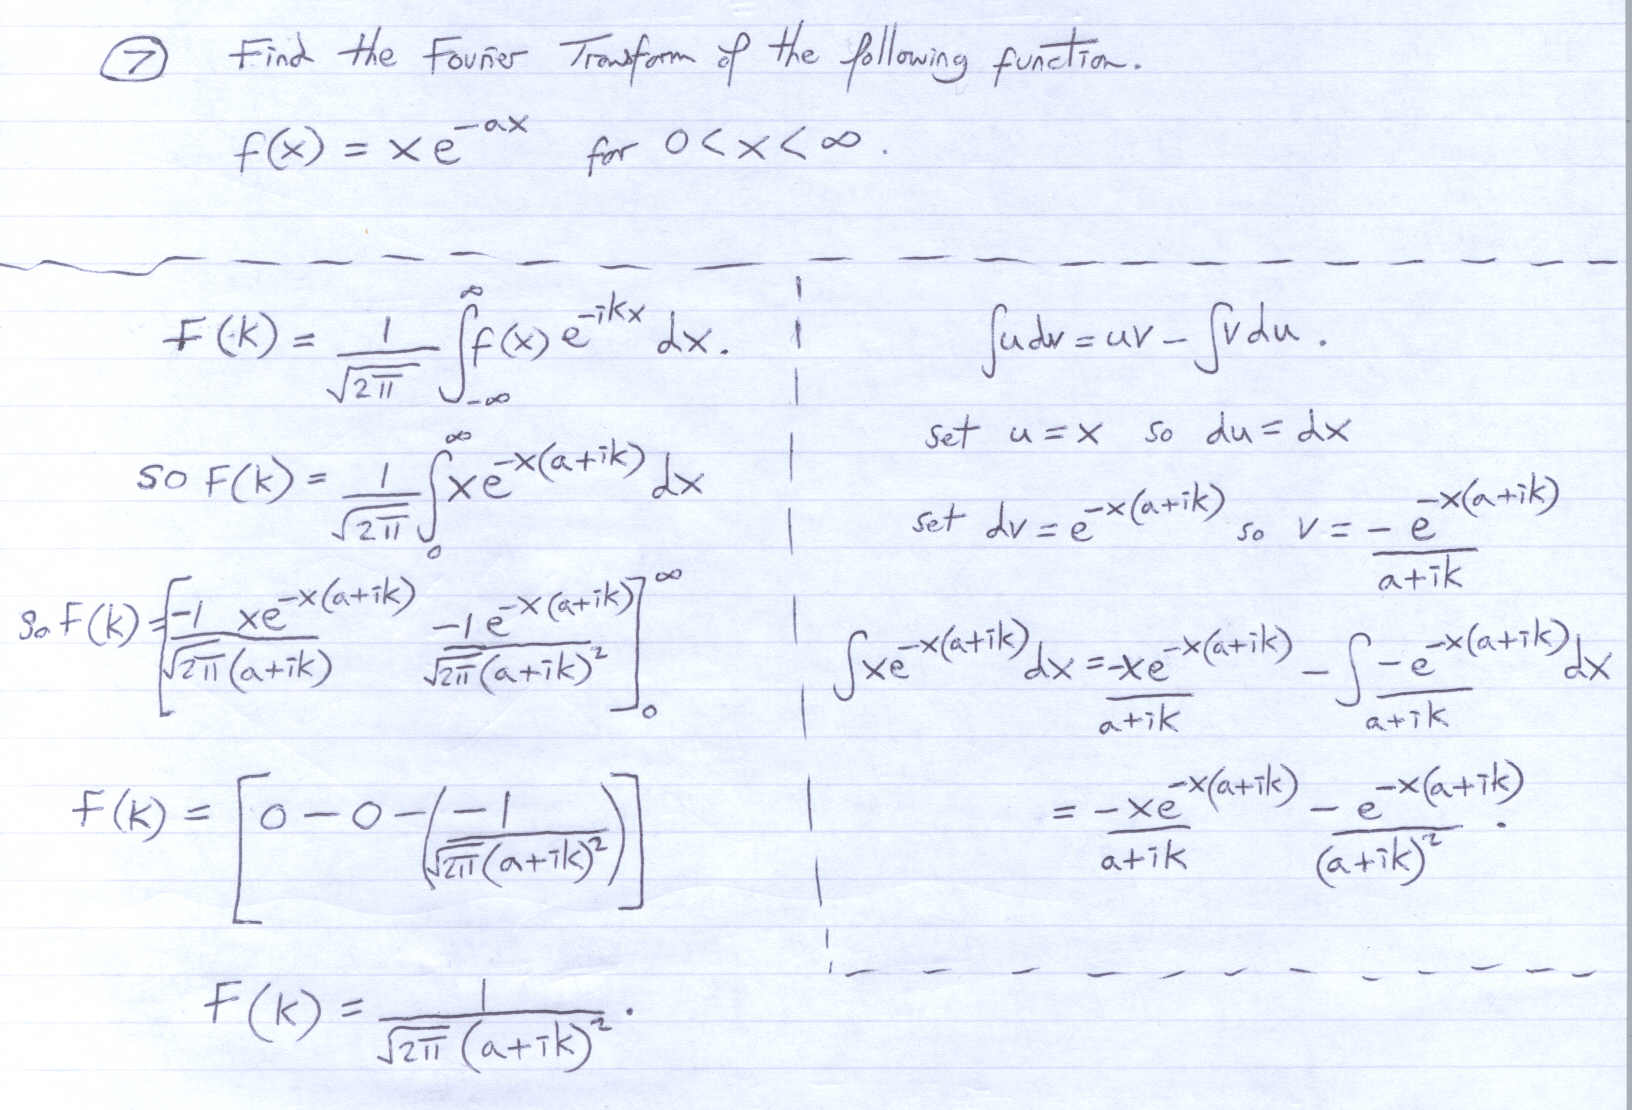 ⑦ Find the Fourier Transform of the following function.
f(x) = xe^{-ax} for 0<x<∞.
F(k) = \frac{1}{\sqrt{2π}} ∫_{-∞}^{∞} f(x) e^{-ikx} dx.
so F(k) = \frac{1}{\sqrt{2π}} ∫_{0}^{∞} xe^{-x(a+ik)} dx
so F(k) = [\frac{-1 xe^{-x(a+ik)}}{\sqrt{2π}(a+ik)} \frac{-1 e^{-x(a+ik)}}{\sqrt{2π}(a+ik)^2}]_{0}^{∞}
F(k) = [0 - 0 - (\frac{-1}{\sqrt{2π}(a+ik)^2})]
F(k) = \frac{1}{\sqrt{2π}(a+ik)^2}.
∫udv = uv - ∫vdu.
set u = x so du = dx
set dv = e^{-x(a+ik)} so v = \frac{-e^{-x(a+ik)}}{a+ik}
∫xe^{-x(a+ik)} dx = \frac{-xe^{-x(a+ik)}}{a+ik} - ∫\frac{-e^{-x(a+ik)}}{a+ik} dx
= \frac{-xe^{-x(a+ik)}}{a+ik} - \frac{e^{-x(a+ik)}}{(a+ik)^2}.